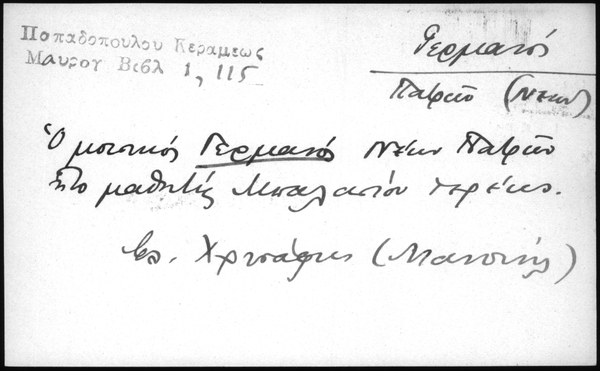 Παπαδοπουλου Κεραμεως
Μαυρογ Βιβλ 1, 115
Γερμανός
Πατρῶν (Νέων)
Ὁ μουσικός Γερμανός Νέων Πατρῶν
ἦτο μαθητής Μπαλασίου ἱερέως.
Βλ. Χρυσάφης (Μανουήλ)